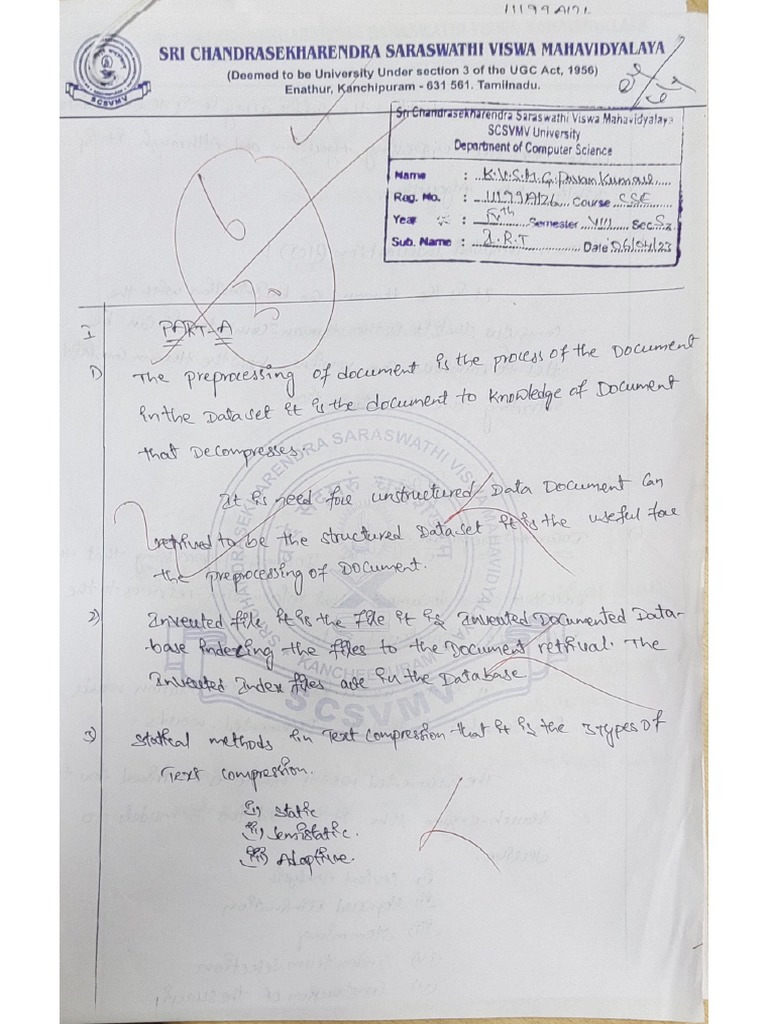 11199A126
SRI CHANDRASEKHARENDRA SARASWATHI VISWA MAHAVIDYALAYA
(Deemed to be University Under section 3 of the UGC Act, 1956)
Enathur, Kanchipuram - 631 561. Tamilnadu.
SCSVMV
Sri Chandrasekharendra Saraswathi Viswa Mahavidyalaya
SCSVMV University
Department of Computer Science
Name : K.V.S.M.G. Pavan Kumar
Reg. No. : 11199A126 Course CSE
Year : IVth Semester VIII Sec S2
Sub. Name : I.R.T Date 06/04/23
I PART-A
1) The preprocessing of document is the process of the Document
in the Data set it is the document to Knowledge of Document
that Decompresses.
It is need for unstructured Data Document Can
retrived to be the structured Data set it is the useful for
the preprocessing of Document.
2) Inverted file it is the file it is Inverted Documented Data-
base indexing the files to the Document retrival. The
Inverted Index files are in the Database
3) Statical methods in Text Compression that it is the 3 types of
Text compression.
i) Static
ii) Semistatic.
iii) Adaptive.
SRI CHANDRASEKHARENDRA SARASWATHI VISWA MAHAVIDYALAYA
KANCHEEPURAM
SCSVMV